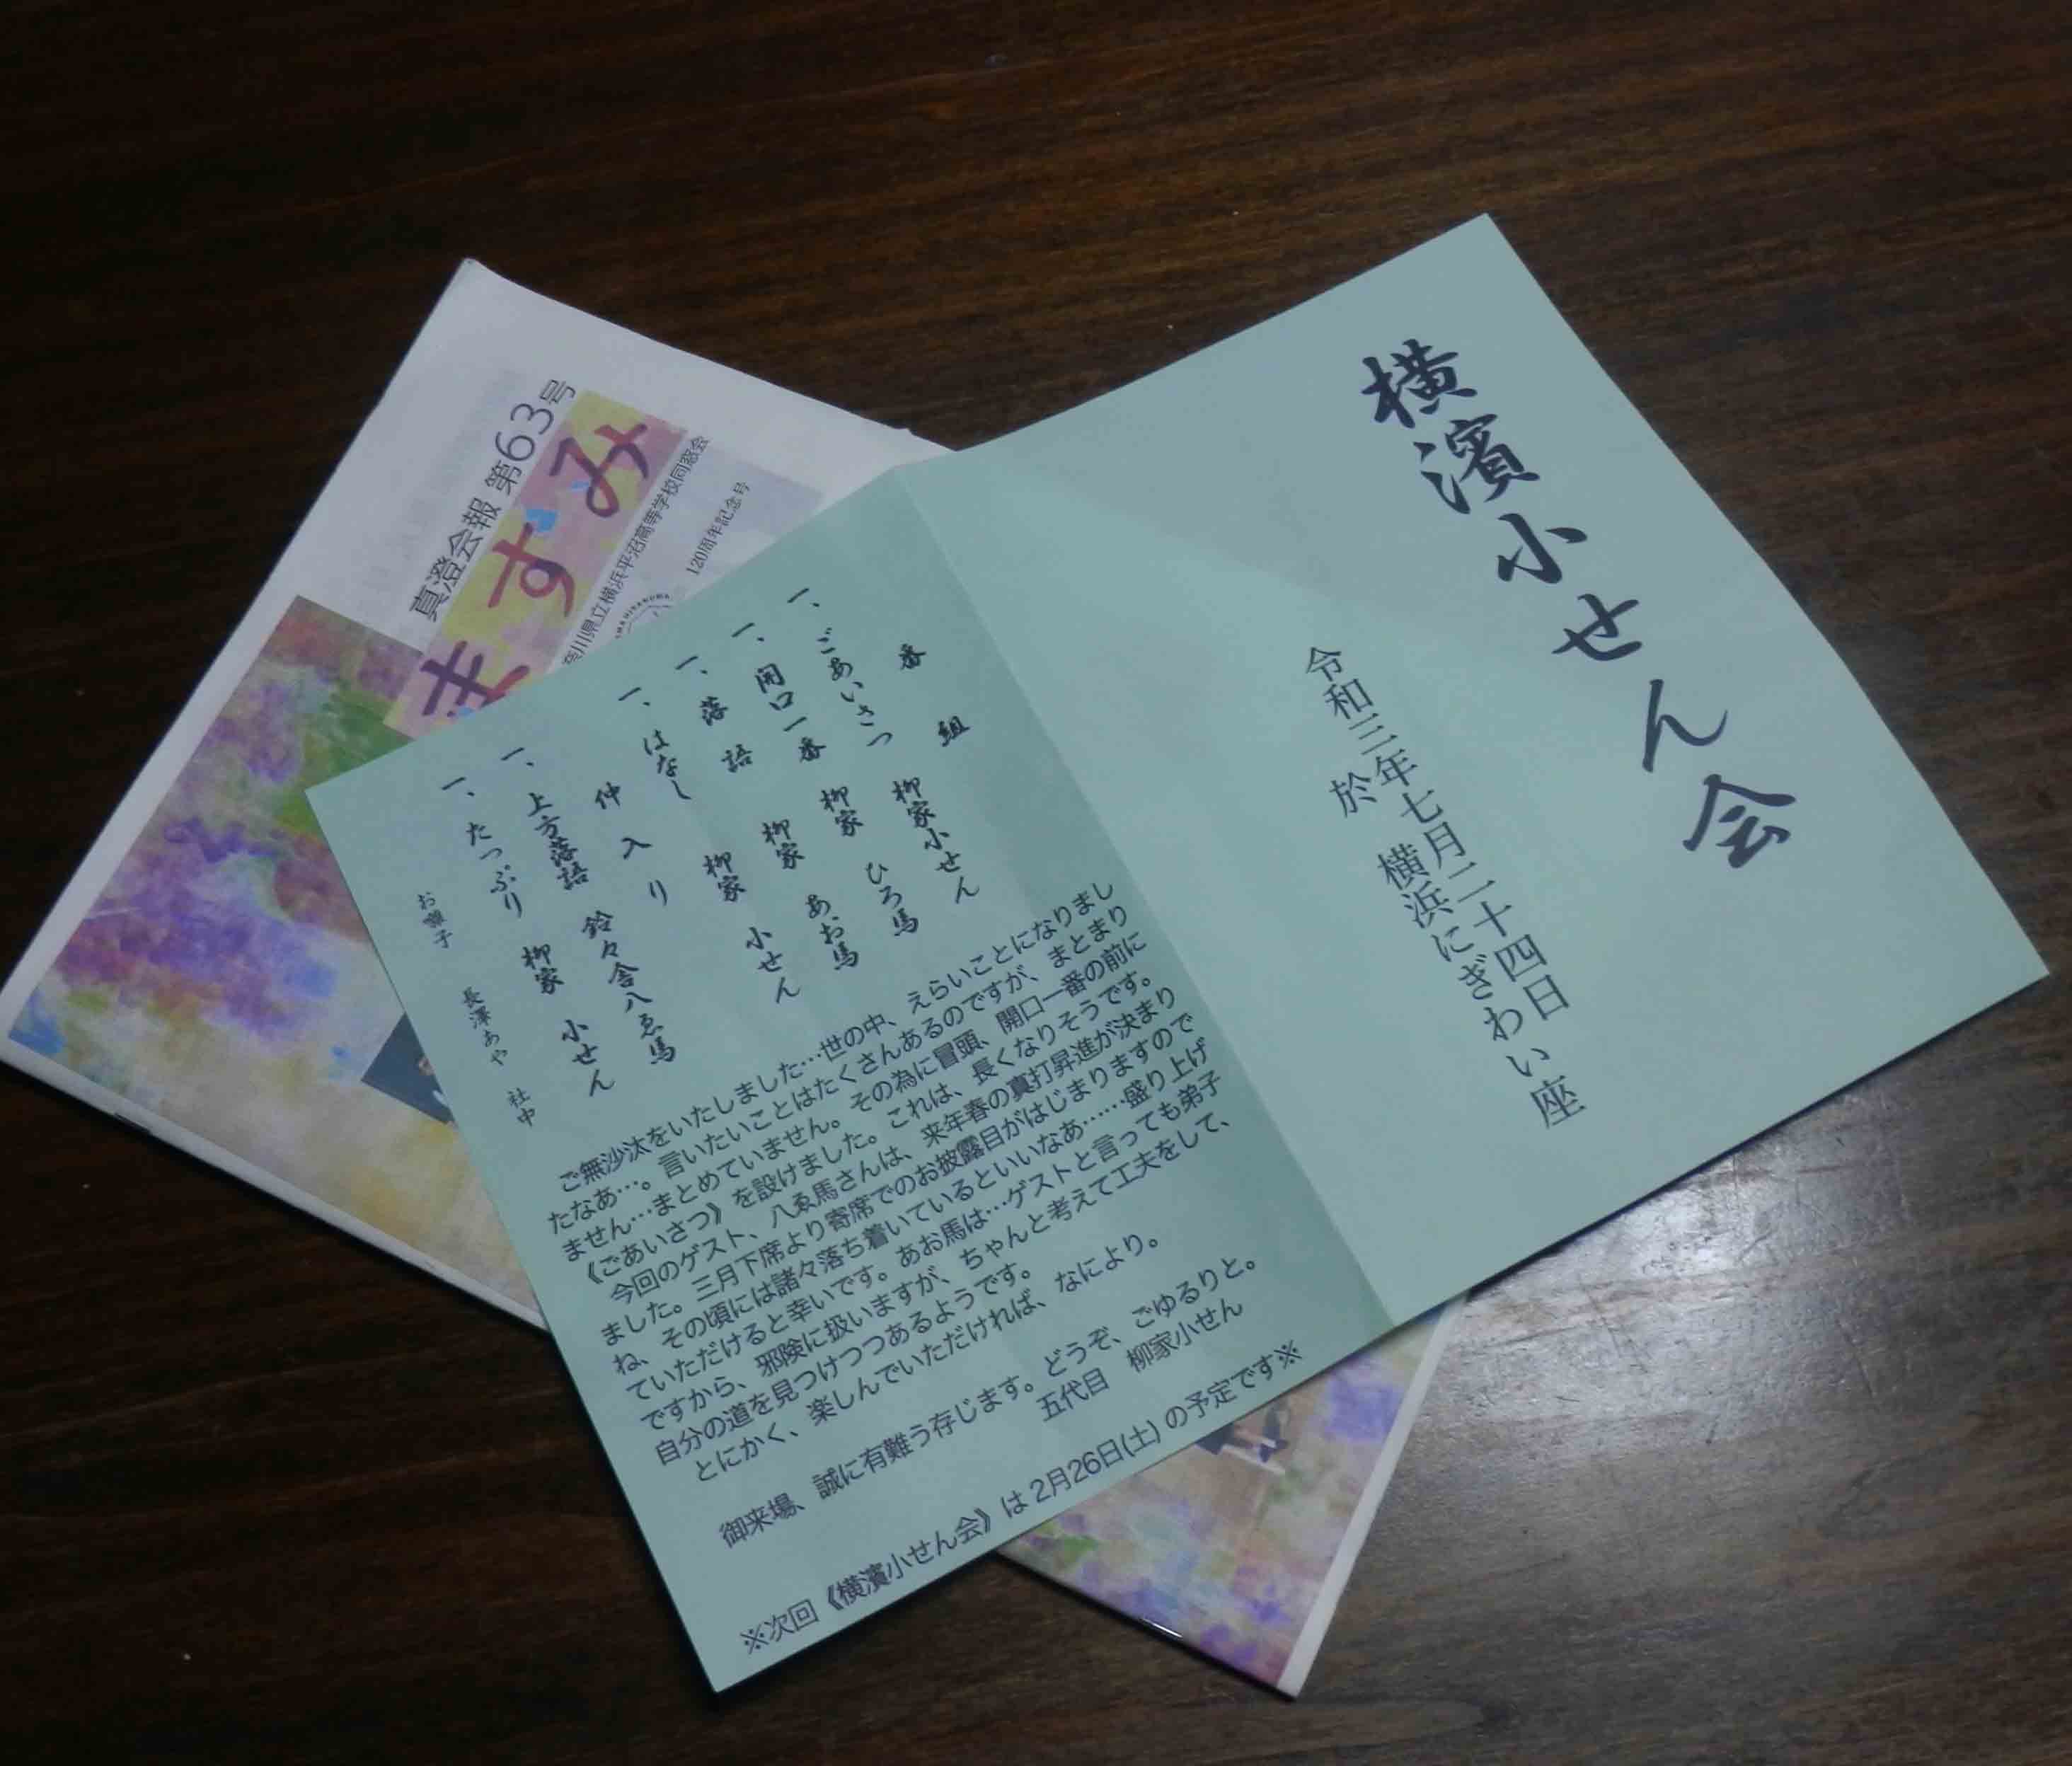 横濱小せん会
令和三年七月二十四日
於 横浜にぎわい座
番組
一、ごあいさつ 柳家小せん
一、開口一番 柳家 ひろ馬
一、落語 柳家 あお馬
一、はなし 柳家 小せん
仲入り
一、上方落語 鈴々舎八ゑ馬
一、たっぷり 柳家 小せん
お囃子 長澤あや 社中
ご無沙汰をいたしました…世の中、えらいことになりまし
たなあ…。言いたいことはたくさんあるのですが、まとまり
ません…まとめていません。その為に冒頭、開口一番の前に
《ごあいさつ》を設けました。これは、長くなりそうです。
今回のゲスト、八ゑ馬さんは、来年春の真打昇進が決まり
ました。三月下席より寄席でのお披露目がはじまりますので
ね、その頃には諸々落ち着いているといいなあ……盛り上げ
ていただけると幸いです。あお馬は…ゲストと言っても弟子
ですから、邪険に扱いますが、ちゃんと考えて工夫をして、
自分の道を見つけつつあるようです。
とにかく、楽しんでいただければ、なにより。
御来場、誠に有難う存じます。どうぞ、ごゆるりと。
五代目 柳家小せん
※次回《横濱小せん会》は2月26日(土)の予定です※
真澄会報 第63号
ますみ
奈川県立横浜平沼高等学校同窓会
120周年記念号